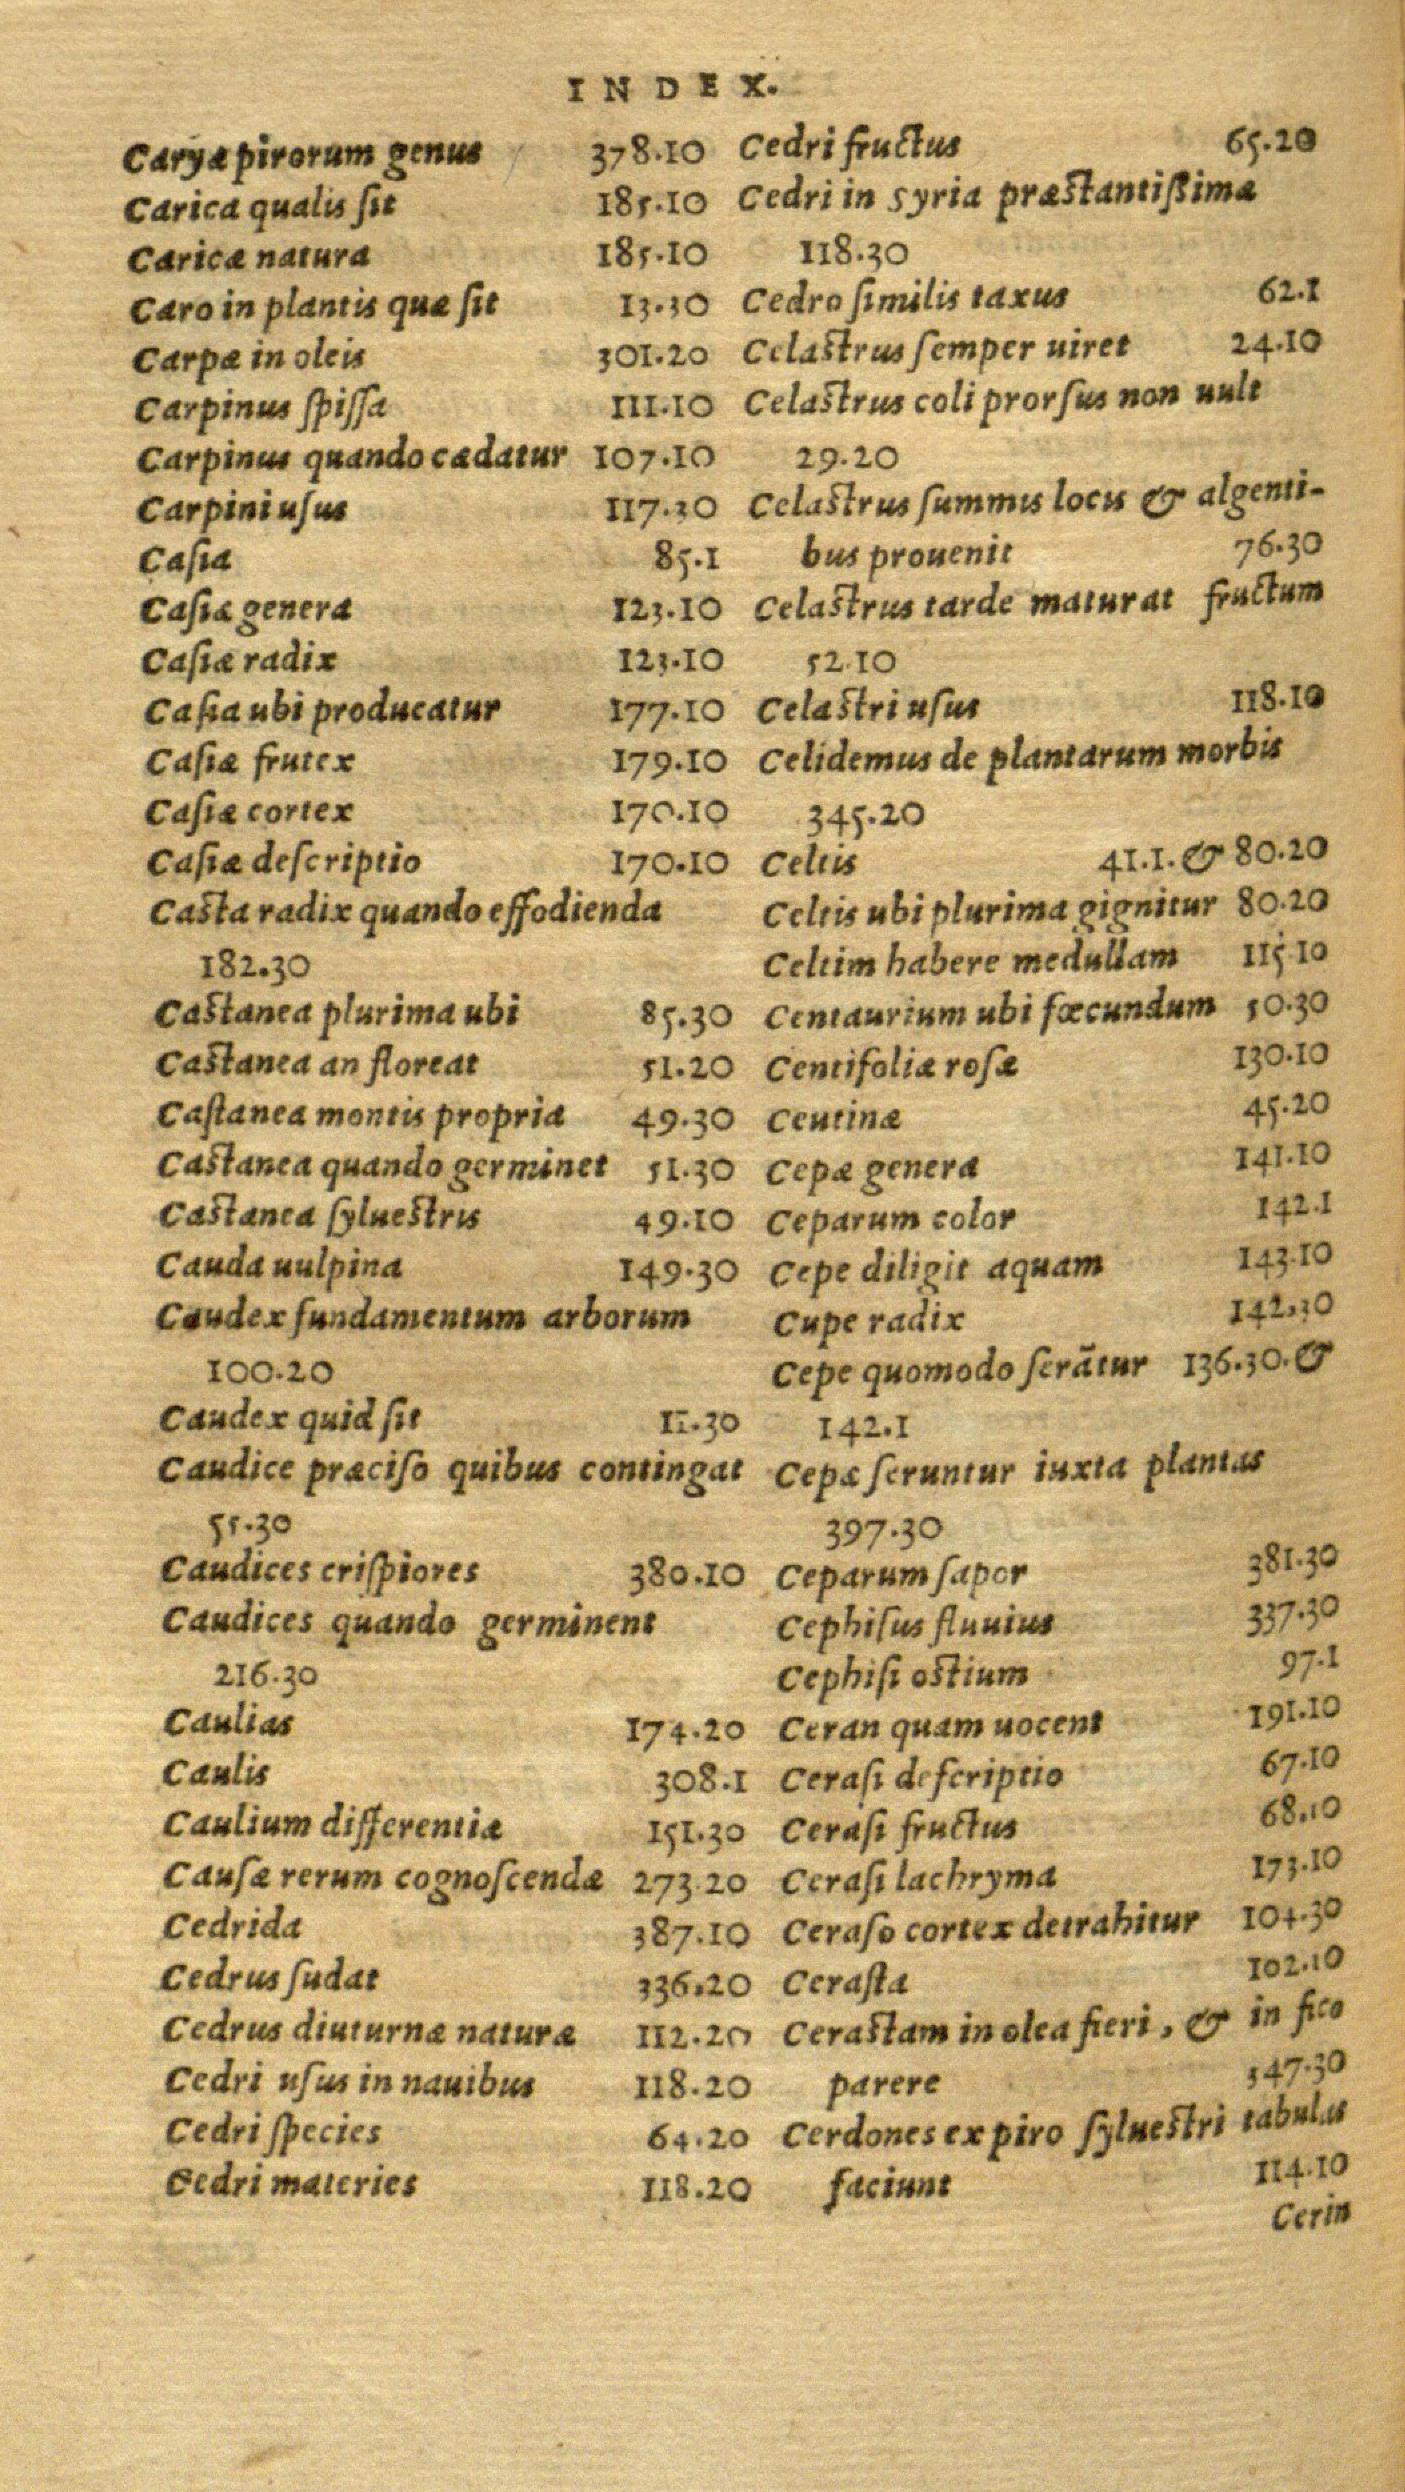 INDEX.
Caryæ pirorum genus 378.10
Carica qualis ſit 185.10
Caricæ natura 185.10
Caro in plantis quæ ſit 13.30
Carpæ in oleis 301.20
Carpinus ſpiſſa 111.10
Carpinus quando cædatur 107.10
Carpini uſus 117.30
Caſia 85.1
Caſiæ genera 123.10
Caſiæ radix 123.10
Caſia ubi producatur 177.10
Caſiæ frutex 179.10
Caſiæ cortex 170.10
Caſiæ deſcriptio 170.10
Caſta radix quando effodienda
182.30
Caſtanea plurima ubi 85.30
Caſtanea an floreat 51.20
Caſtanea montis propria 49.30
Caſtanea quando germinet 51.30
Caſtanea ſylueſtris 49.10
Cauda uulpina 149.30
Caudex fundamentum arborum
100.20
Caudex quid ſit 11.30
Caudice præciſo quibus contingat
55.30
Caudices criſpiores 380.10
Caudices quando germinent
216.30
Caulias 174.20
Caulis 308.1
Caulium differentiæ 151.30
Cauſæ rerum cognoſcendæ 273.20
Cedrida 387.10
Cedrus ſudat 336.20
Cedrus diuturnæ naturæ 112.20
Cedri uſus in nauibus 118.20
Cedri ſpecies 64.20
Cedri materies 118.20
Cedri fructus 65.20
Cedri in Syria præſtantiſsimæ
118.30
Cedro ſimilis taxus 62.1
Celaſtrus ſemper uiret 24.10
Celaſtrus coli prorſus non uult
29.20
Celaſtrus ſummis locis & algenti-
bus prouenit 76.30
Celaſtrus tarde maturat fructum
52.10
Celaſtri uſus 118.10
Celidemus de plantarum morbis
345.20
Celtis 41.1. & 80.20
Celtis ubi plurima gignitur 80.20
Celtim habere medullam 115.10
Centaurium ubi fœcundum 50.30
Centifoliæ roſæ 130.10
Ceutinæ 45.20
Cepæ genera 141.10
Ceparum color 142.1
Cepe diligit aquam 143.10
Cupe radix 142.30
Cepe quomodo ſerãtur 136.30. &
142.1
Cepæ ſeruntur iuxta plantas
397.30
Ceparum ſapor 381.30
Cephiſus fluuius 337.30
Cephiſi oſtium 97.1
Ceran quam uocent 191.10
Ceraſi deſcriptio 67.10
Ceraſi fructus 68.10
Ceraſi lachryma 173.10
Ceraſo cortex detrahitur 104.30
Ceraſta 102.10
Ceraſtam in olea fieri, & in fico
parere 347.30
Cerdones ex piro ſylueſtri tabulas
faciunt 114.10
Cerin